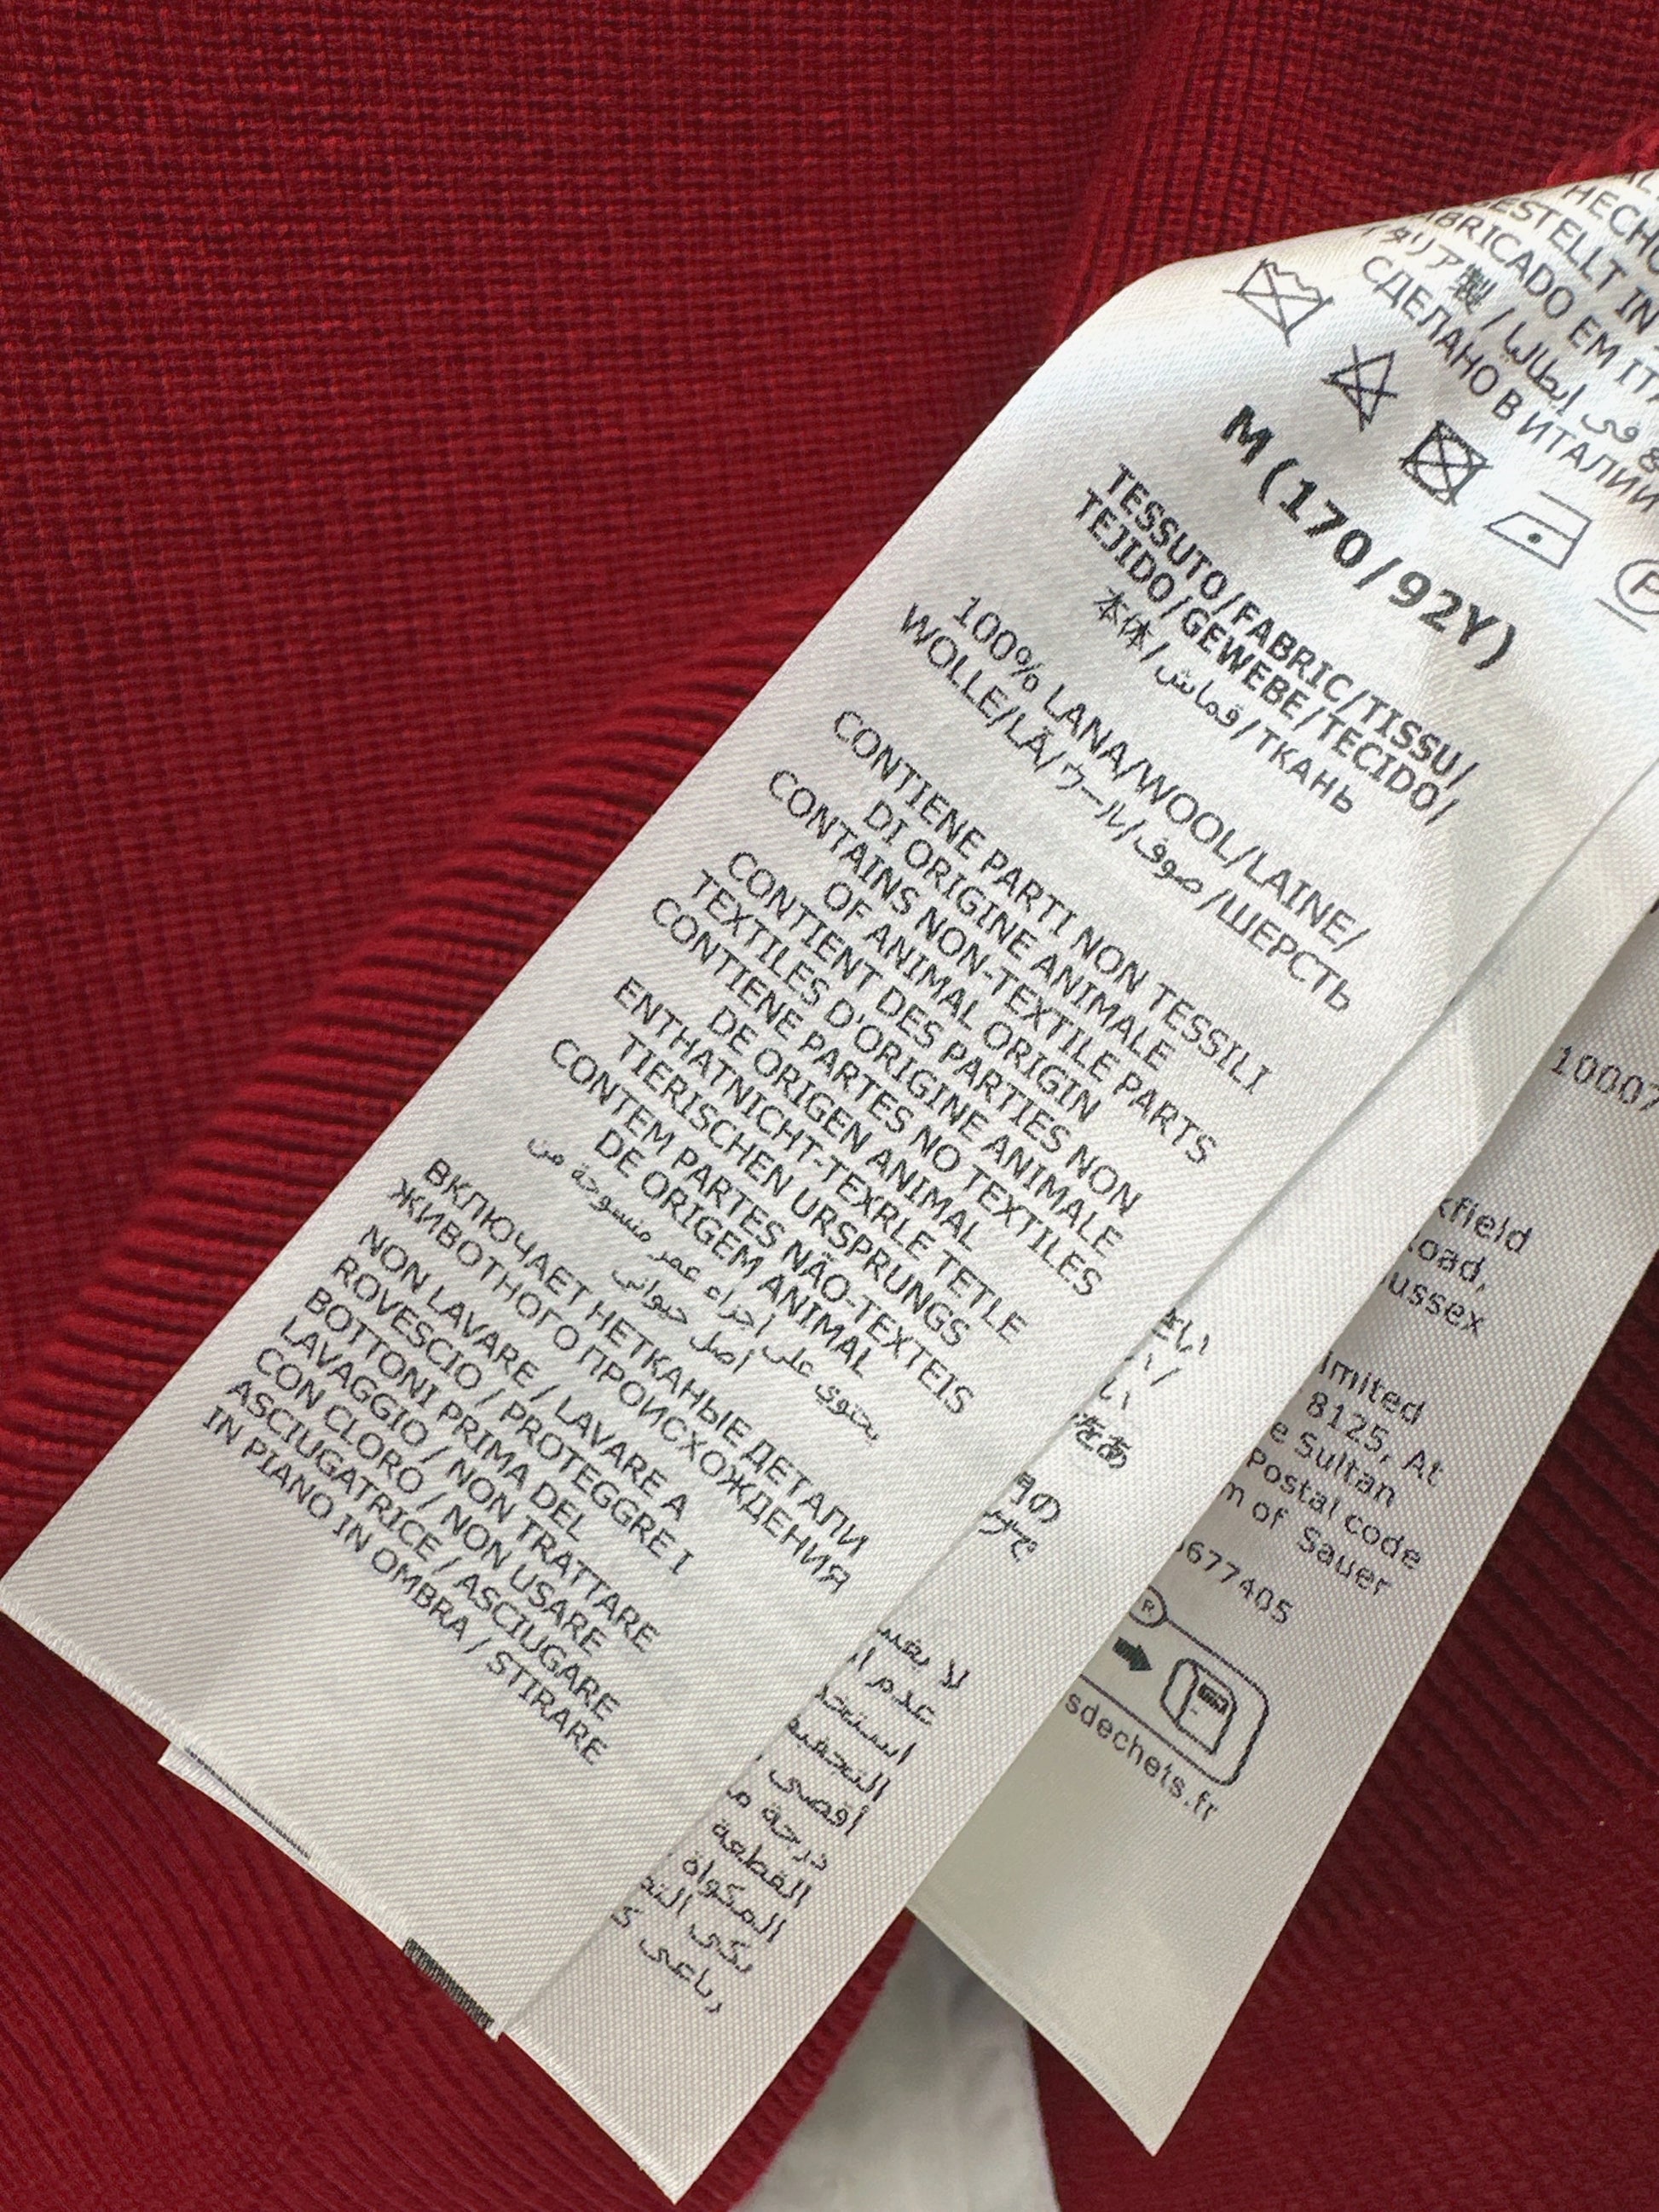 HECHO
ESTELLT IN
BRICADO EM ITA
イタリア製 / في إيطاليا
СДЕЛАНО В ИТАЛИИ
P
M (170/92Y)
TESSUTO/FABRIC/TISSU/
TEJIDO/GEWEBE/TECIDO/
本体/قماش/ТКАНЬ
100% LANA/WOOL/LAINE/
WOLLE/LÃ/ウール/صوف/ШЕРСТЬ
CONTIENE PARTI NON TESSILI
DI ORIGINE ANIMALE
CONTAINS NON-TEXTILE PARTS
OF ANIMAL ORIGIN
CONTIENT DES PARTIES NON
TEXTILES D'ORIGINE ANIMALE
CONTIENE PARTES NO TEXTILES
DE ORIGEN ANIMAL
ENTHATNICHT-TEXRLE TETLE
TIERISCHEN URSPRUNGS
CONTEM PARTES NÃO-TEXTEIS
DE ORIGEM ANIMAL
يحتوي على أجزاء عمر منسوحة من
أصل حيواني
ВКЛЮЧАЕТ НЕТКАНЫЕ ДЕТАЛИ
ЖИВОТНОГО ПРОИСХОЖДЕНИЯ
NON LAVARE / LAVARE A
ROVESCIO / PROTEGGRE I
BOTTONI PRIMA DEL
LAVAGGIO / NON TRATTARE
CON CLORO / NON USARE
ASCIUGATRICE / ASCIUGARE
IN PIANO IN OMBRA / STIRARE
さい
い/
い
をあ
用の
グで
لا يغس
عدم ا
استخد
التجفيف
أقصى
درجة م
القطعة
المكواة
بكى التد
رباعى
10007
field
oad,
ussex
imited
8125, At
e Sultan
Postal code
m of Sauer
677405
R
sdechets.fr